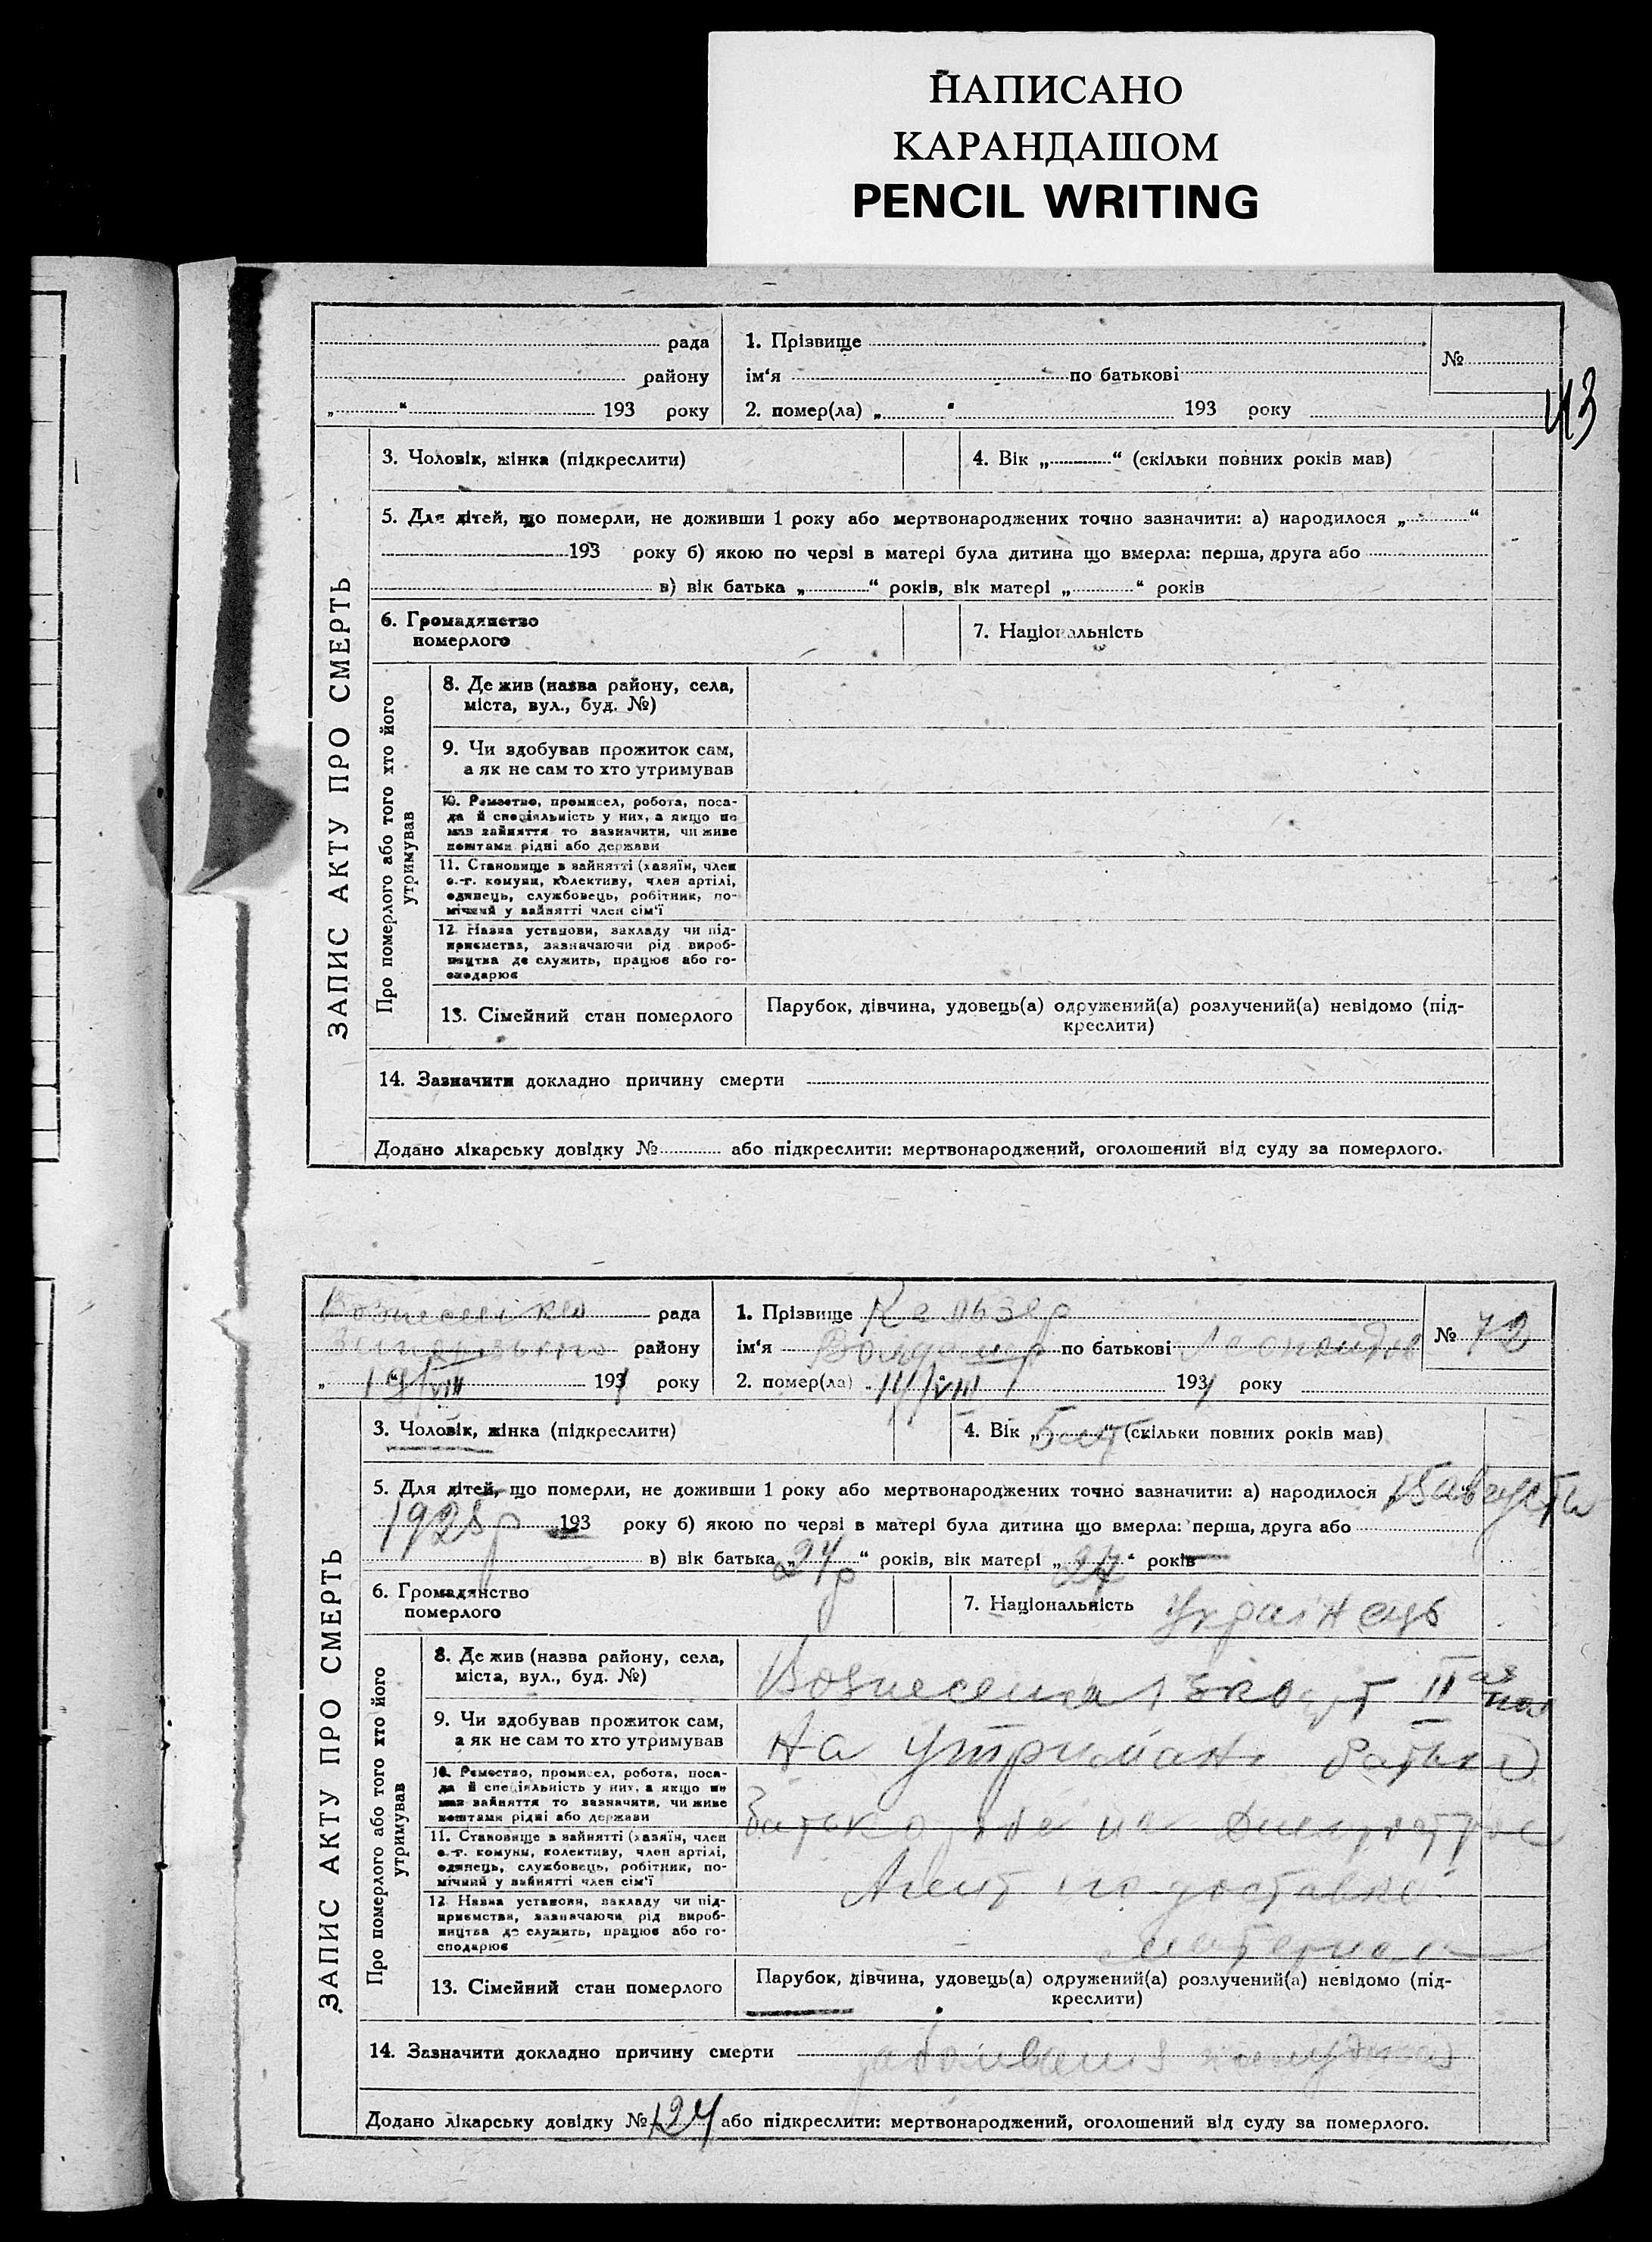 НАПИСАНО
КАРАНДАШОМ
PENCIL WRITING
43
рада
району
„ “ 193 року
1. Прізвище
ім‘я по батькові
2. помер(ла) „ “ 193 року
№
ЗАПИС АКТУ ПРО СМЕРТЬ
3. Чоловік, жінка (підкреслити)
4. Вік „ “ (скільки повних років мав)
5. Для дітей, що померли, не доживши 1 року або мертвонароджених точно зазначити: а) народилося „ “
193 року б) якою по черзі в матері була дитина що вмерла: перша, друга або
в) вік батька „ “ років, вік матері „ “ років
6. Громадянство
померлого
7. Національність
Про померлого або того хто його
утримував
8. Де жив (назва району, села,
міста, вул., буд. №)
9. Чи здобував прожиток сам,
а як не сам то хто утримував
10. Ремество, промисел, робота, поса-
да й спеціяльність у них, а якщо не
мав зайняття то зазначити, чи живе
коштами рідні або держави
11. Становище в зайнятті (хазяїн, член
с.-г. комуни, колективу, член артілі,
одинець, службовець, робітник, по-
мічний у зайнятті член сім‘ї
12. Назва установи, закладу чи під-
приємства, зазначаючи рід вироб-
ництва де служить, працює або го-
сподарює
13. Сімейний стан померлого
Парубок, дівчина, удовець(а) одружений(а) розлучений(а) невідомо (під-
креслити)
14. Зазначити докладно причину смерти
Додано лікарську довідку № або підкреслити: мертвонароджений, оголошений від суду за померлого.
рада
району
„ 19/VIII 1931 року
1. Прізвище Кальзер
ім‘я Володимер по батькові
2. помер(ла) „ 1931 року
№ 72
ЗАПИС АКТУ ПРО СМЕРТЬ
3. Чоловік, жінка (підкреслити)
4. Вік „ “ (скільки повних років мав)
5. Для дітей, що померли, не доживши 1 року або мертвонароджених точно зазначити: а) народилося „ 15 августа
1928р 193 року б) якою по черзі в матері була дитина що вмерла: перша, друга або
в) вік батька „ 24р “ років, вік матері „ 24 “ років
6. Громадянство
померлого
7. Національність Українець
Про померлого або того хто його
утримував
8. Де жив (назва району, села,
міста, вул., буд. №)
Вознесенка II
9. Чи здобував прожиток сам,
а як не сам то хто утримував
На утримані батька
10. Ремество, промисел, робота, поса-
да й спеціяльність у них, а якщо не
мав зайняття то зазначити, чи живе
коштами рідні або держави
11. Становище в зайнятті (хазяїн, член
с.-г. комуни, колективу, член артілі,
одинець, службовець, робітник, по-
мічний у зайнятті член сім‘ї
Агент по доставке
12. Назва установи, закладу чи під-
приємства, зазначаючи рід вироб-
ництва де служить, працює або го-
сподарює
13. Сімейний стан померлого
Парубок, дівчина, удовець(а) одружений(а) розлучений(а) невідомо (під-
креслити)
14. Зазначити докладно причину смерти
Додано лікарську довідку № 124 або підкреслити: мертвонароджений, оголошений від суду за померлого.